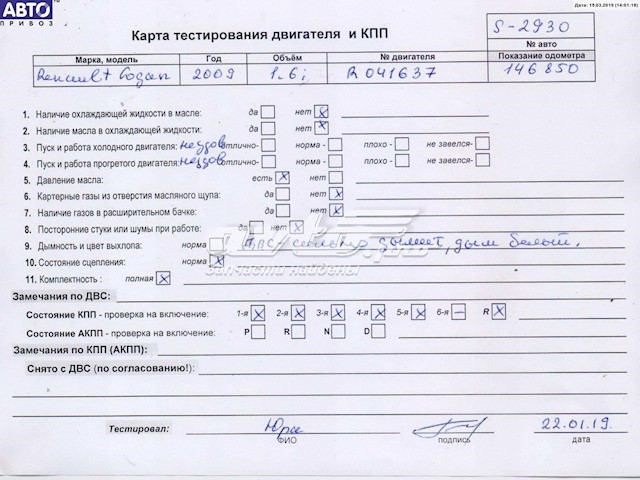 АВТО
ПРИВОЗ
Дата: 15.03.2019 (14:01:18)
Карта тестирования двигателя и КПП
S-2930
№ авто
Марка, модель Год Объём № двигателя Показание одометра
Renault Logan 2009 1.6i R041637 146 850
1. Наличие охлаждающей жидкости в масле: да нет x
2. Наличие масла в охлаждающей жидкости: да нет x
3. Пуск и работа холодного двигателя: неудов отлично- норма - плохо - не завелся-
4. Пуск и работа прогретого двигателя: неудов отлично- норма - плохо - не завелся-
5. Давление масла: есть x нет
6. Картерные газы из отверстия масляного щупа: да нет x
7. Наличие газов в расширительном бачке: да нет x
8. Посторонние стуки или шумы при работе: да нет x
9. Дымность и цвет выхлопа: норма ДВС сильно дымает, дым белый.
10. Состояние сцепления: норма x
Запчасти найдены
11. Комплектность : полная x
Замечания по ДВС:
Состояние КПП - проверка на включение: 1-я x 2-я x 3-я x 4-я x 5-я x 6-я – R x
Состояние АКПП - проверка на включение: P R N D
Замечания по КПП (АКПП):
Снято с ДВС (по согласованию!):
Тестировал: Юра 22.01.19.
ФИО подпись дата